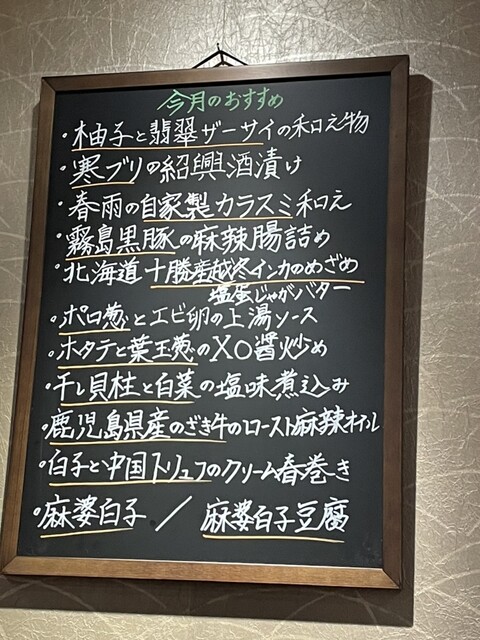 今月のおすすめ
・柚子と翡翠ザーサイの和え物
・寒ブリの紹興酒漬け
・春雨の自家製カラスミ和え
・霧島黒豚の麻辣腸詰め
・北海道十勝産越冬インカのめざめ
塩蛋じゃがバター
・ポロ葱とエビ卵の上湯ソース
・ホタテと葉玉葱のXO醤炒め
・干し貝柱と白菜の塩味煮込み
・鹿児島県産のざき牛のロースト麻辣オイル
・白子と中国トリュフのクリーム春巻き
・麻婆白子 / 麻婆白子豆腐